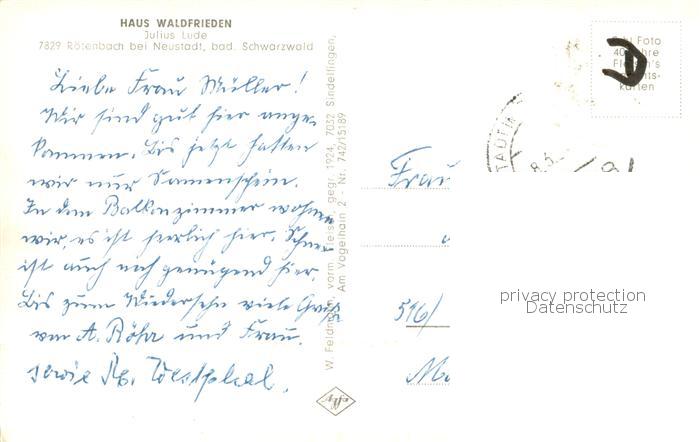 HAUS WALDFRIEDEN
Julius Lude
7829 Rötenbach bei Neustadt, bad. Schwarzwald
Liebe Frau Müller!
Wir sind gut hier ange-
kommen. Bis jetzt hatten
wir nur Sonnenschein.
In dem Balkonzimmer wohnen
wir, es ist herrlich hier. Schnee
ist auch noch genügend hier.
Bis zum Wiedersehn viele Grüße
von A. Röhr und Frau.
sowie Westphal.
W. Feldmann, vorm. Fleisen, gegr. 1924, 7032 Sindelfingen,
Am Vogelhain 2 - Nr. 742/15189
Agfa
Echt Foto
40 Jahre
karten
Frau
privacy protection
Datenschutz